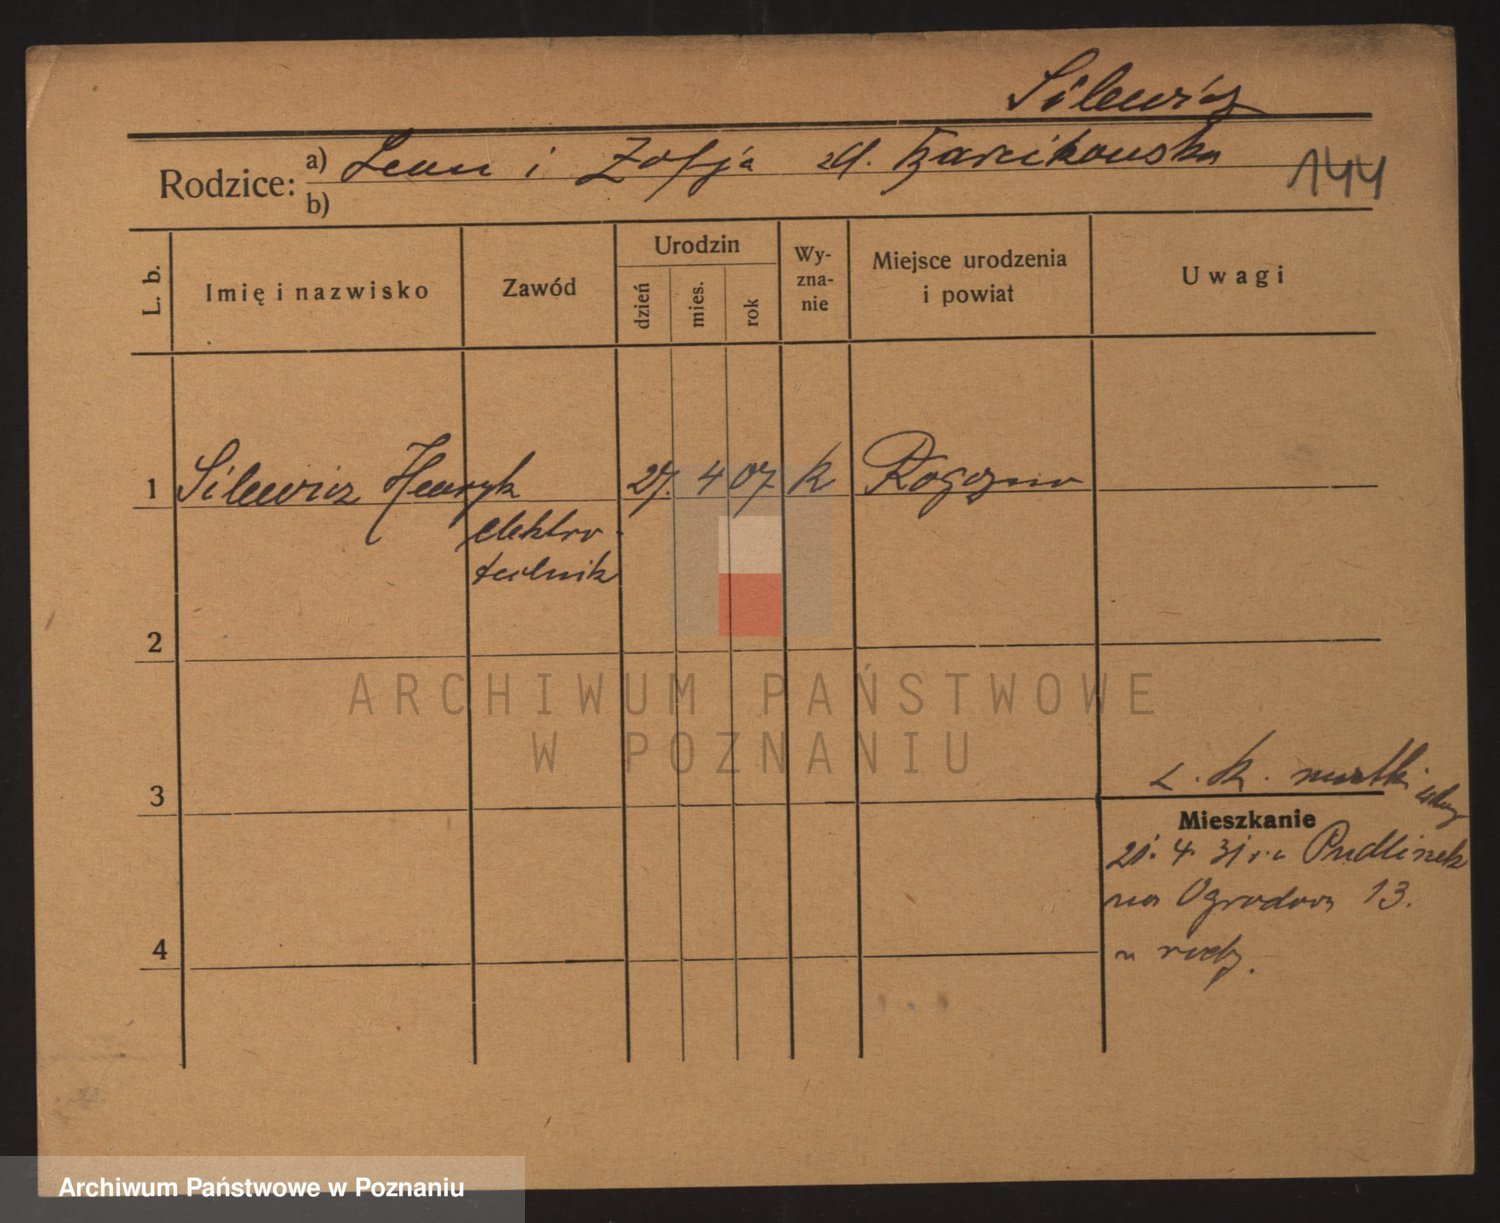 Silewicz
Rodzice: a) Leon i Zofja zd.
b)
144
L. b.
Imię i nazwisko
Zawód
Urodzin
dzień
mies.
rok
Wy-
zna-
nie
Miejsce urodzenia
i powiat
Uwagi
1 Silewicz Henryk 27. 4 07 k Rogozno
elektro-
technik
2
ARCHIWUM PAŃSTWOWE
W POZNANIU
3
k.
Mieszkanie
4. 31 Pudliszek
na Ogrodowa 13.
4
Archiwum Państwowe w Poznaniu